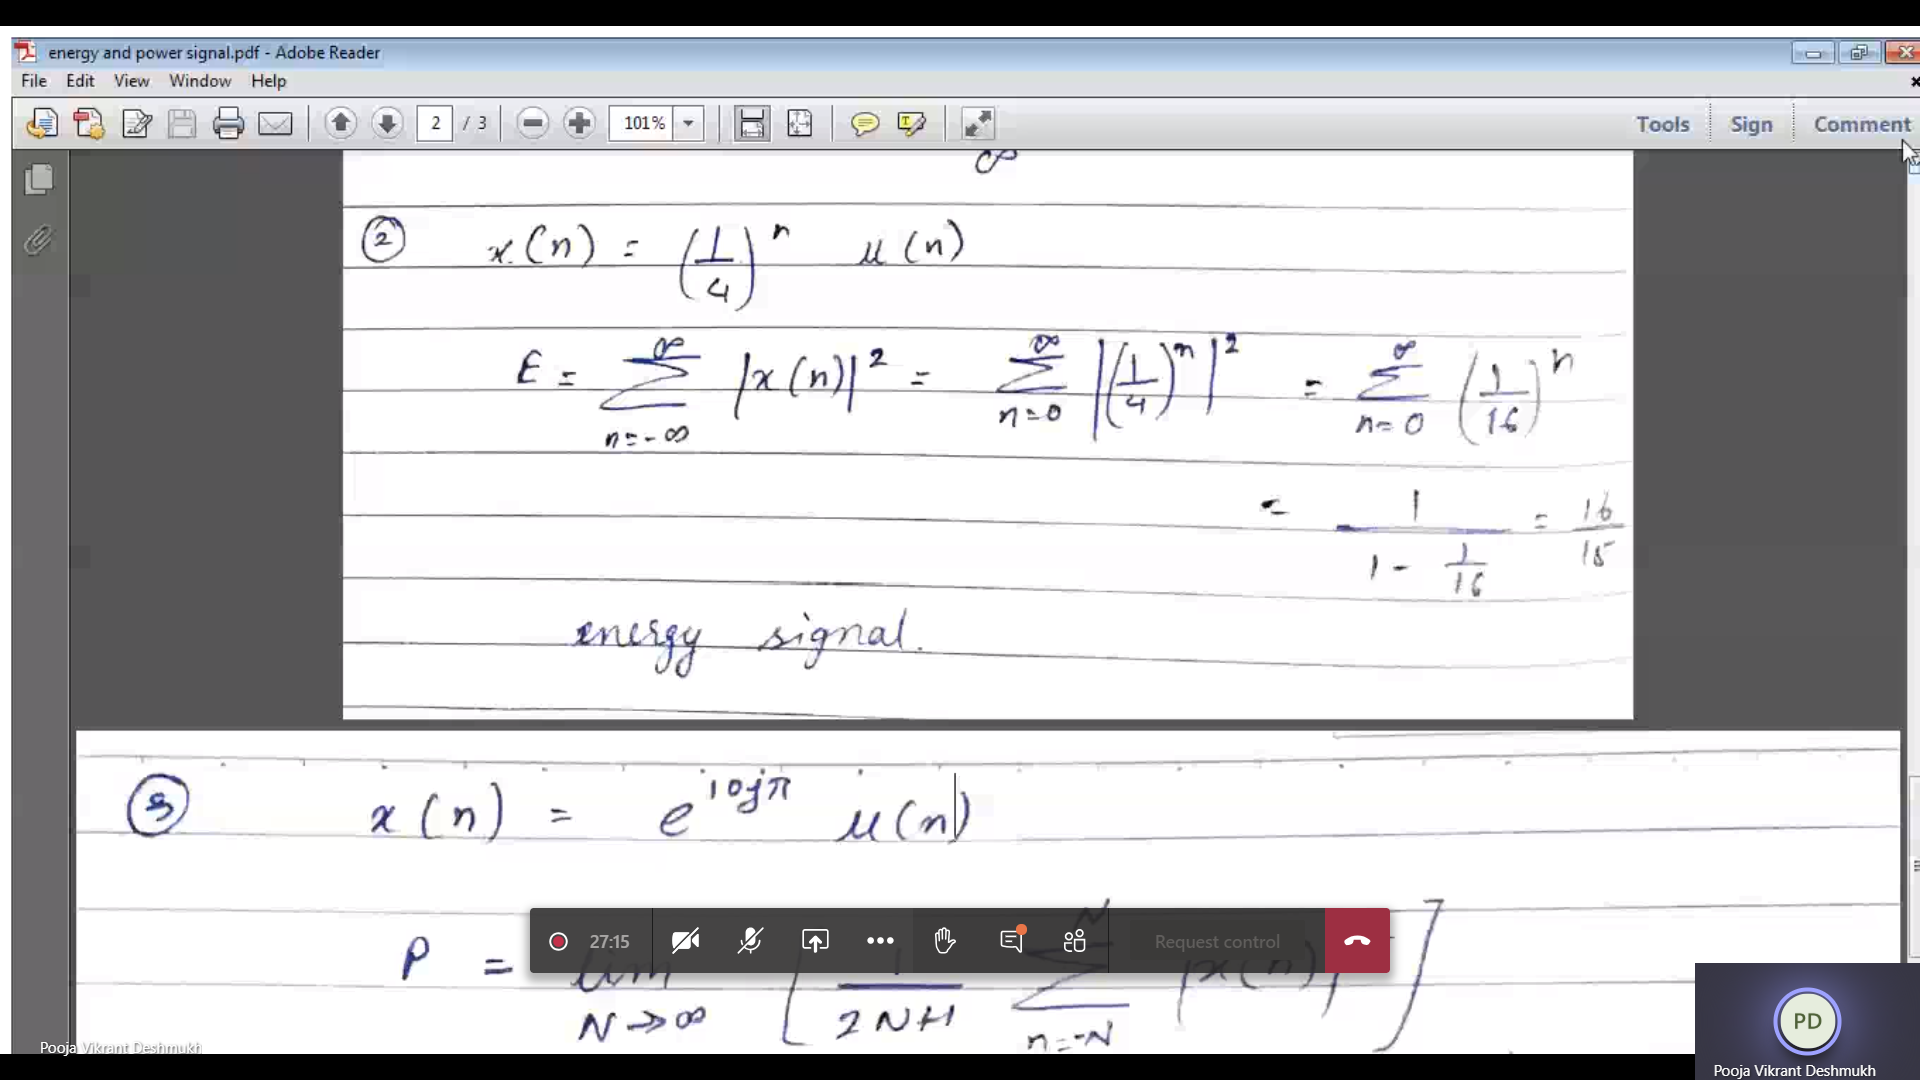 energy and power signal.pdf - Adobe Reader
File Edit View Window Help
2 / 3 101% Tools Sign Comment
∞
② x(n) = (1/4)^n u(n)
E = ∑_{n=-∞}^{∞} |x(n)|^2 = ∑_{n=0}^{∞} |(1/4)^n|^2 = ∑_{n=0}^{∞} (1/16)^n
= 1/(1 - 1/16) = 16/15
energy signal.
③ x(n) = e^{10jπ} u(n)
27:15 Request control
P = lim_{N→∞} [ 1/(2N+1) ∑_{n=-N}^{N} |x(n)| ]
Pooja Vikrant Deshmukh
PD
Pooja Vikrant Deshmukh